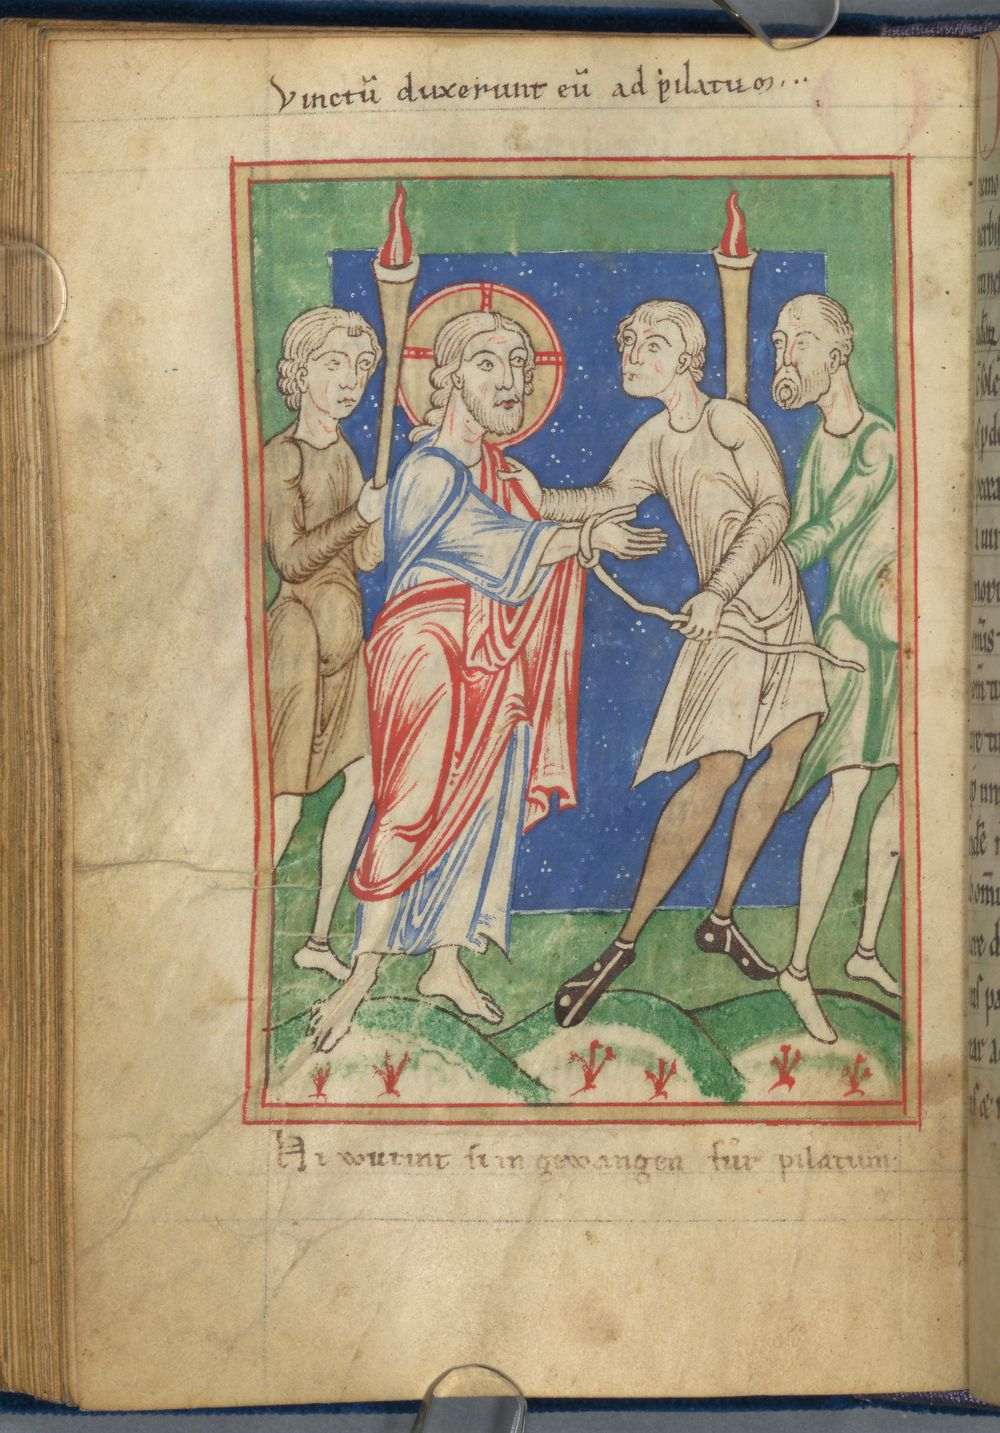 Vinctū duxerunt eū ad pilatum...
Hi wurint si in gewangen fur pilatum.